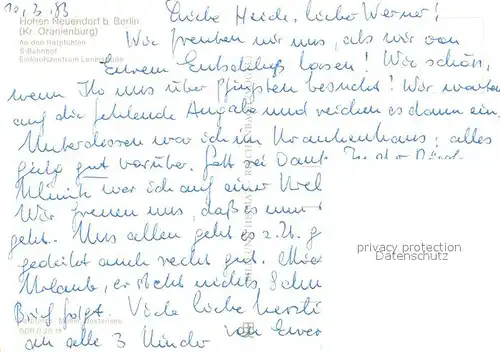 10.3.83
Hohen Neuendorf b. Berlin
(Kr. Oranienburg)
An den Rotpfuhlen
S-Bahnhof
Einkaufszentrum Leninstraße
Liebe Heide, lieber Werner!
Wir freuten wir uns, als wir von
Eurem Entschluß lasen! Wie schön,
wenn Ihr uns über Pfingsten besucht! Wir warten
auf die fehlende Angabe und reichen es dann ein.
Unterdessen war ich im Krankenhaus; alles
ging gut vorüber. Gott sei Dank
Klinik war ich auf einer
Wir freuen uns, daß es nun
geht. Uns allen geht es z.Zt. g
gedeiht auch recht gut.
Urlaub, er
Brief folgt. Viele liebe herzli
an alle 3 Kinder von Eurer
privacy protection